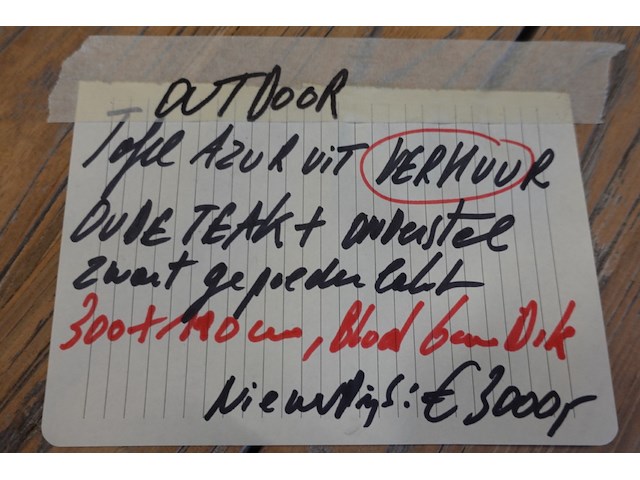 OUTDOOR
Tafel AZUR UIT VERHUUR
OUDE TEAK + onderstel
zwart gepoederlakt
300 + 110 cm, Blad 6cm Dik
Nieuwprijs: € 3000,-